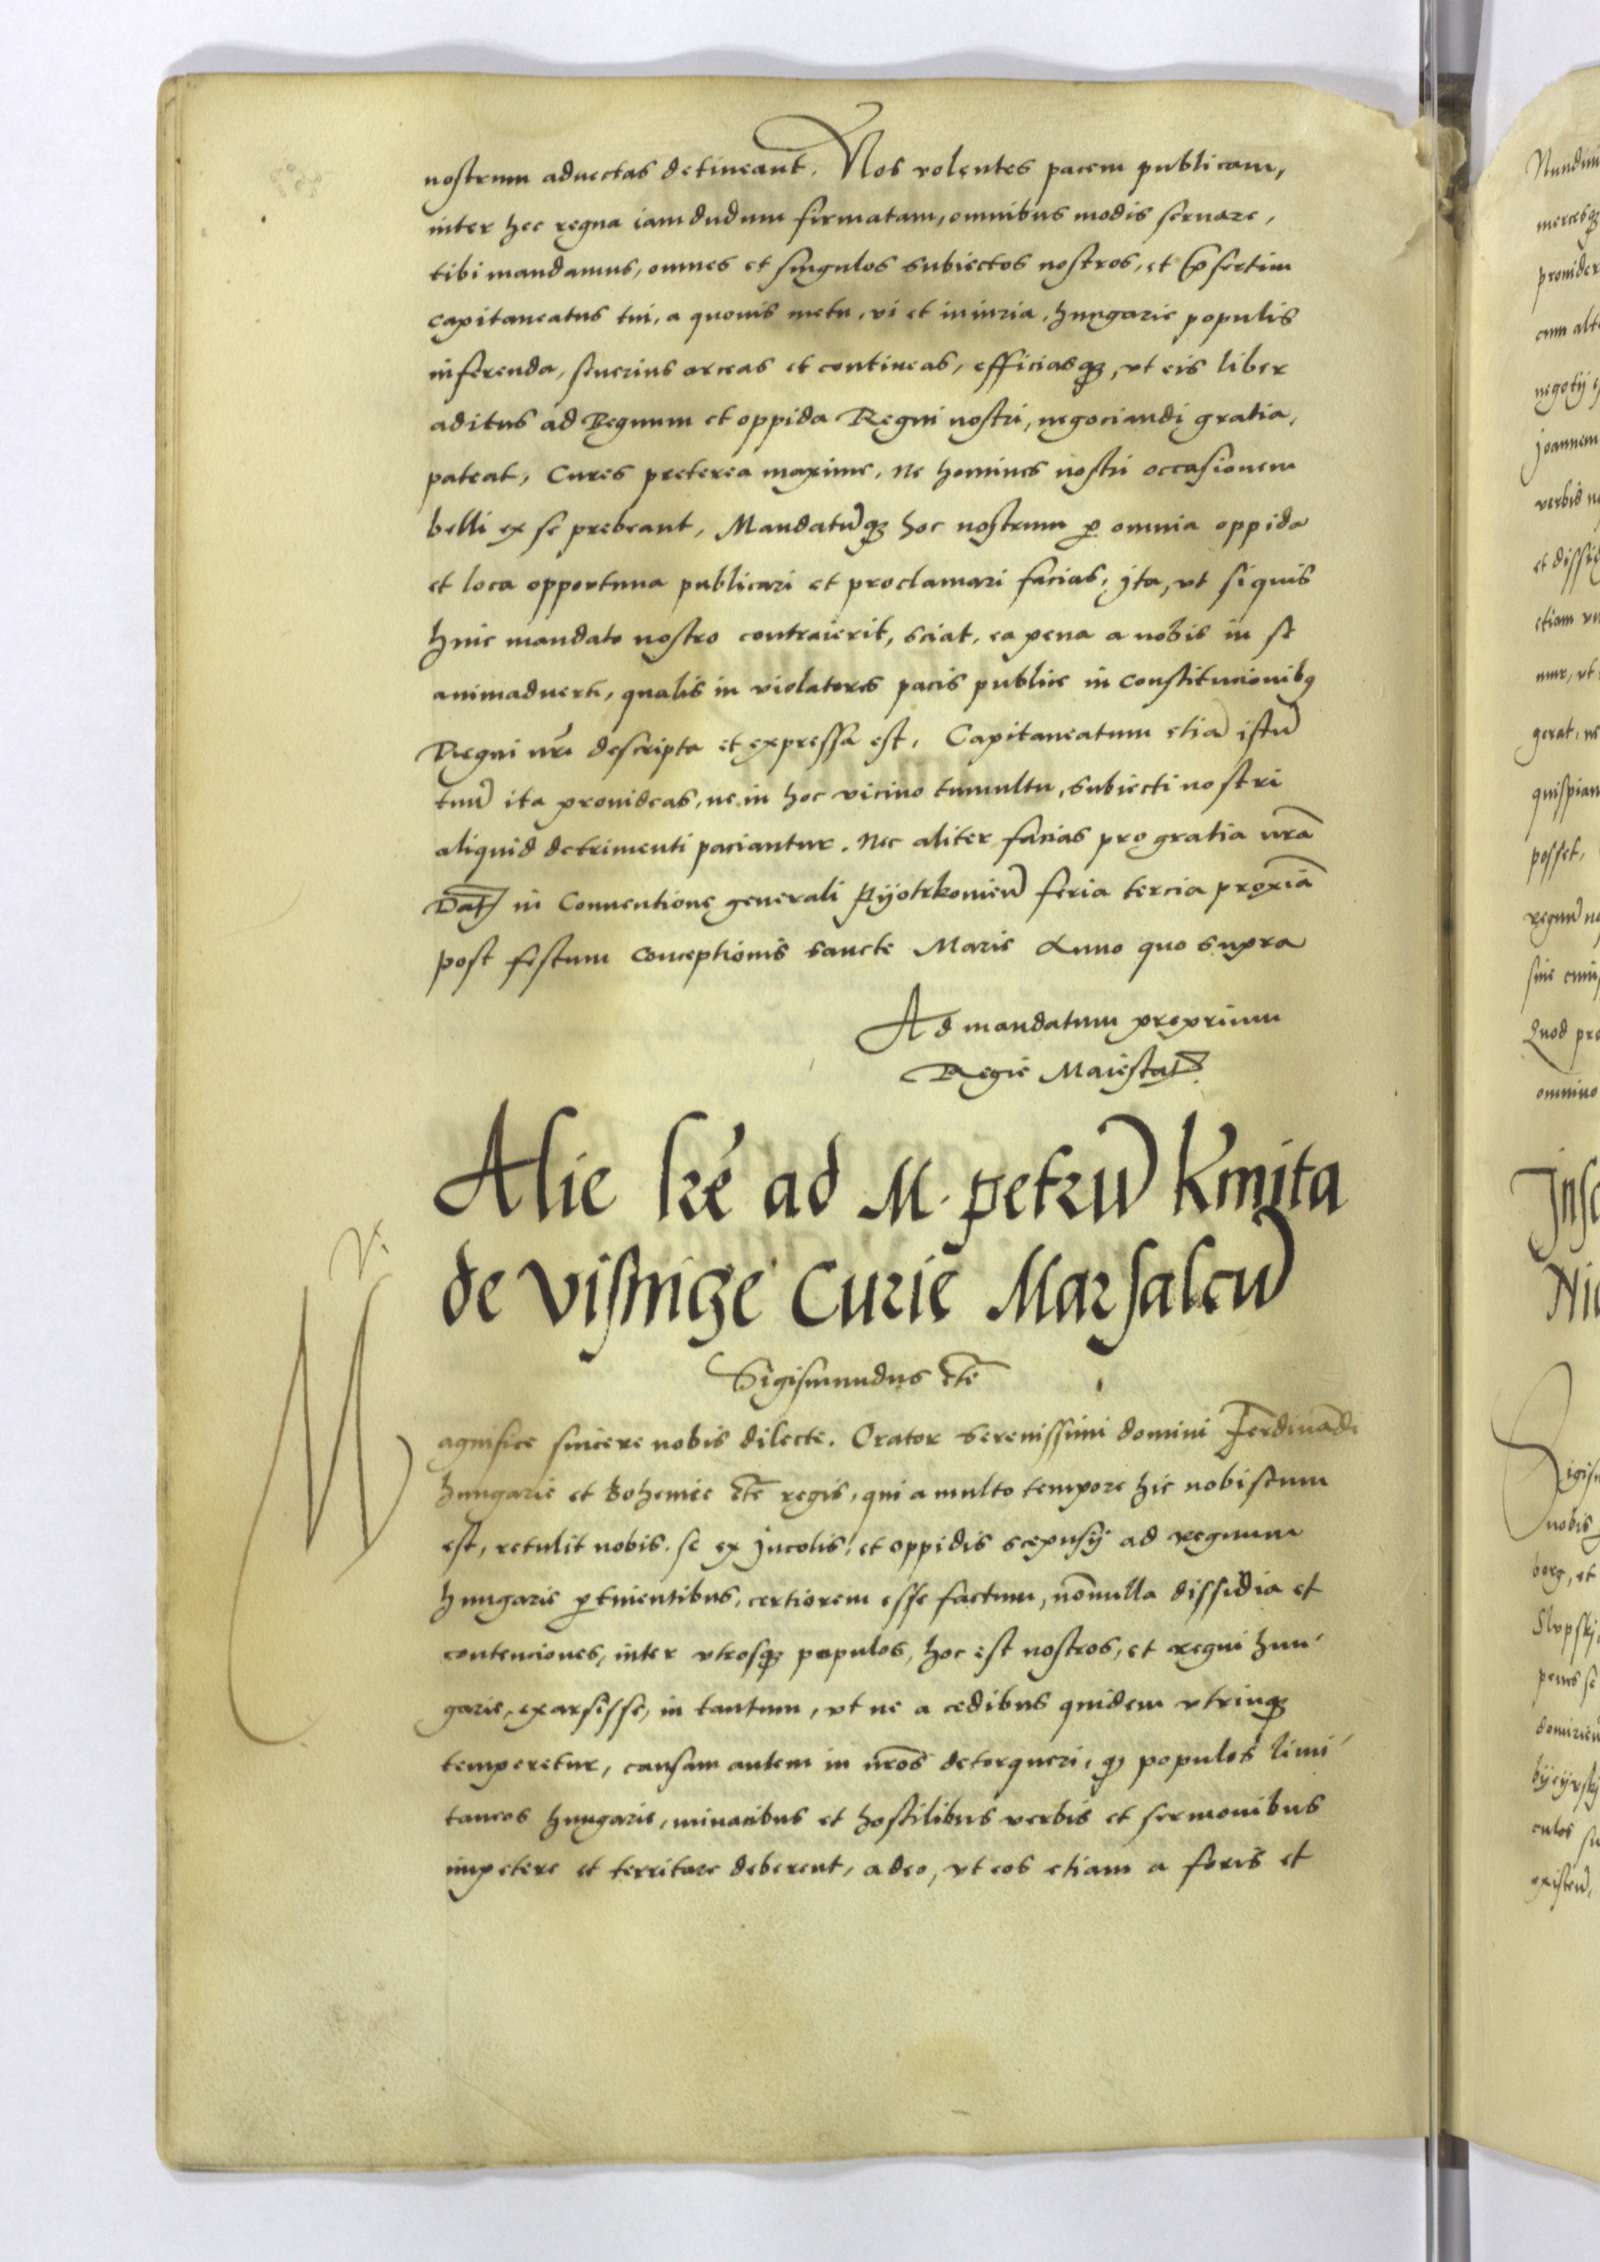 nostrum aduectas detineant. Nos volentes pacem publicam,
inter hec regna iamdudum firmatam, omnibus modis seruare,
tibi mandamus, omnes et singulos subiectos nostros, et p̄sertim
capitaneatus tui, a quouis metu, vi et iniuria, hungarie populis
inferenda, seuerius arceas et contineas, efficiasqꝫ, vt eis liber
aditus ad Regnum et oppida Regni nostri, negociandi gratia,
pateat, Cures preterea maxime, ne homines nostri occasionem
belli ex se prebeant, Mandatūqꝫ hoc nostrum ꝑ omnia oppida
et loca opportuna publicari et proclamari facias, jta, vt siquis
huic mandato nostro contraierit, sciat, ea pena a nobis in se
animaduerti, qualis in violatores pacis publice in constitucionibꝫ
Regni nr̄i descripta et expressa est, Capitaneatum etiā istū
tuū ita prouideas, ne in hoc vicino tumultu, subiecti nostri
aliquid detrimenti paciantur. Nec aliter facias pro gratia nr̄a
Dat̄ in Conuentione generali Pijotrkovien̄ feria tercia proxīa
post festum conceptionis sancte Marie Anno quo supra
Ad mandatum proprium
Regie Maiestat̄
Alie lr̄e ad M. petrū kmita
de visnicze Curie Marsalcū
Sigismundus etc̄
Magnifice sincere nobis dilecte. Orator serenissimi domini Ferdinādi
hungarie et Bohemie etc̄ regis, qui a multo tempore hic nobiscum
est, retulit nobis, se ex jncolis, et oppidis scepusij ad regnum
hungarie ꝑtinentibus, certiorem esse factum, nōnulla dissidia et
contenciones, inter vtrosqꝫ populos, hoc est nostros, et regni hun
garie, exarsisse, in tantum, vt ne a cedibus quidem vtrinqꝫ
temperetur, causam autem in nr̄os detorqueri, qꝫ populos limi
taneos hungarie, minacibus et hostilibus verbis et sermonibus
impetere et territare deberent, adeo, vt eos etiam a foris et